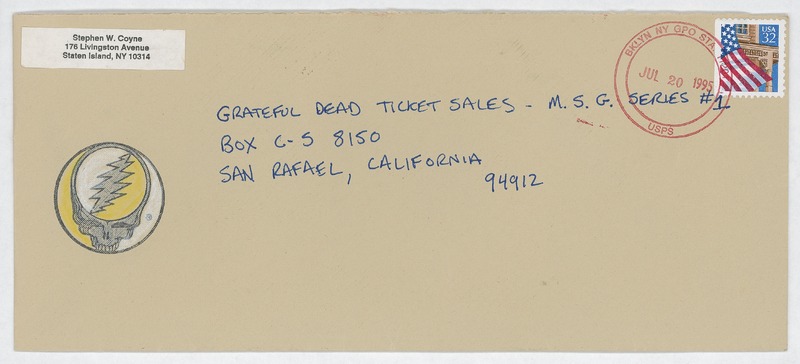 Stephen W. Coyne
176 Livingston Avenue
Staten Island, NY 10314
BKLYN NY GPO STA
JUL 20 1995
USPS
USA
32
GRATEFUL DEAD TICKET SALES - M. S. G. SERIES #1
BOX C-S 8150
SAN RAFAEL, CALIFORNIA
94912
®